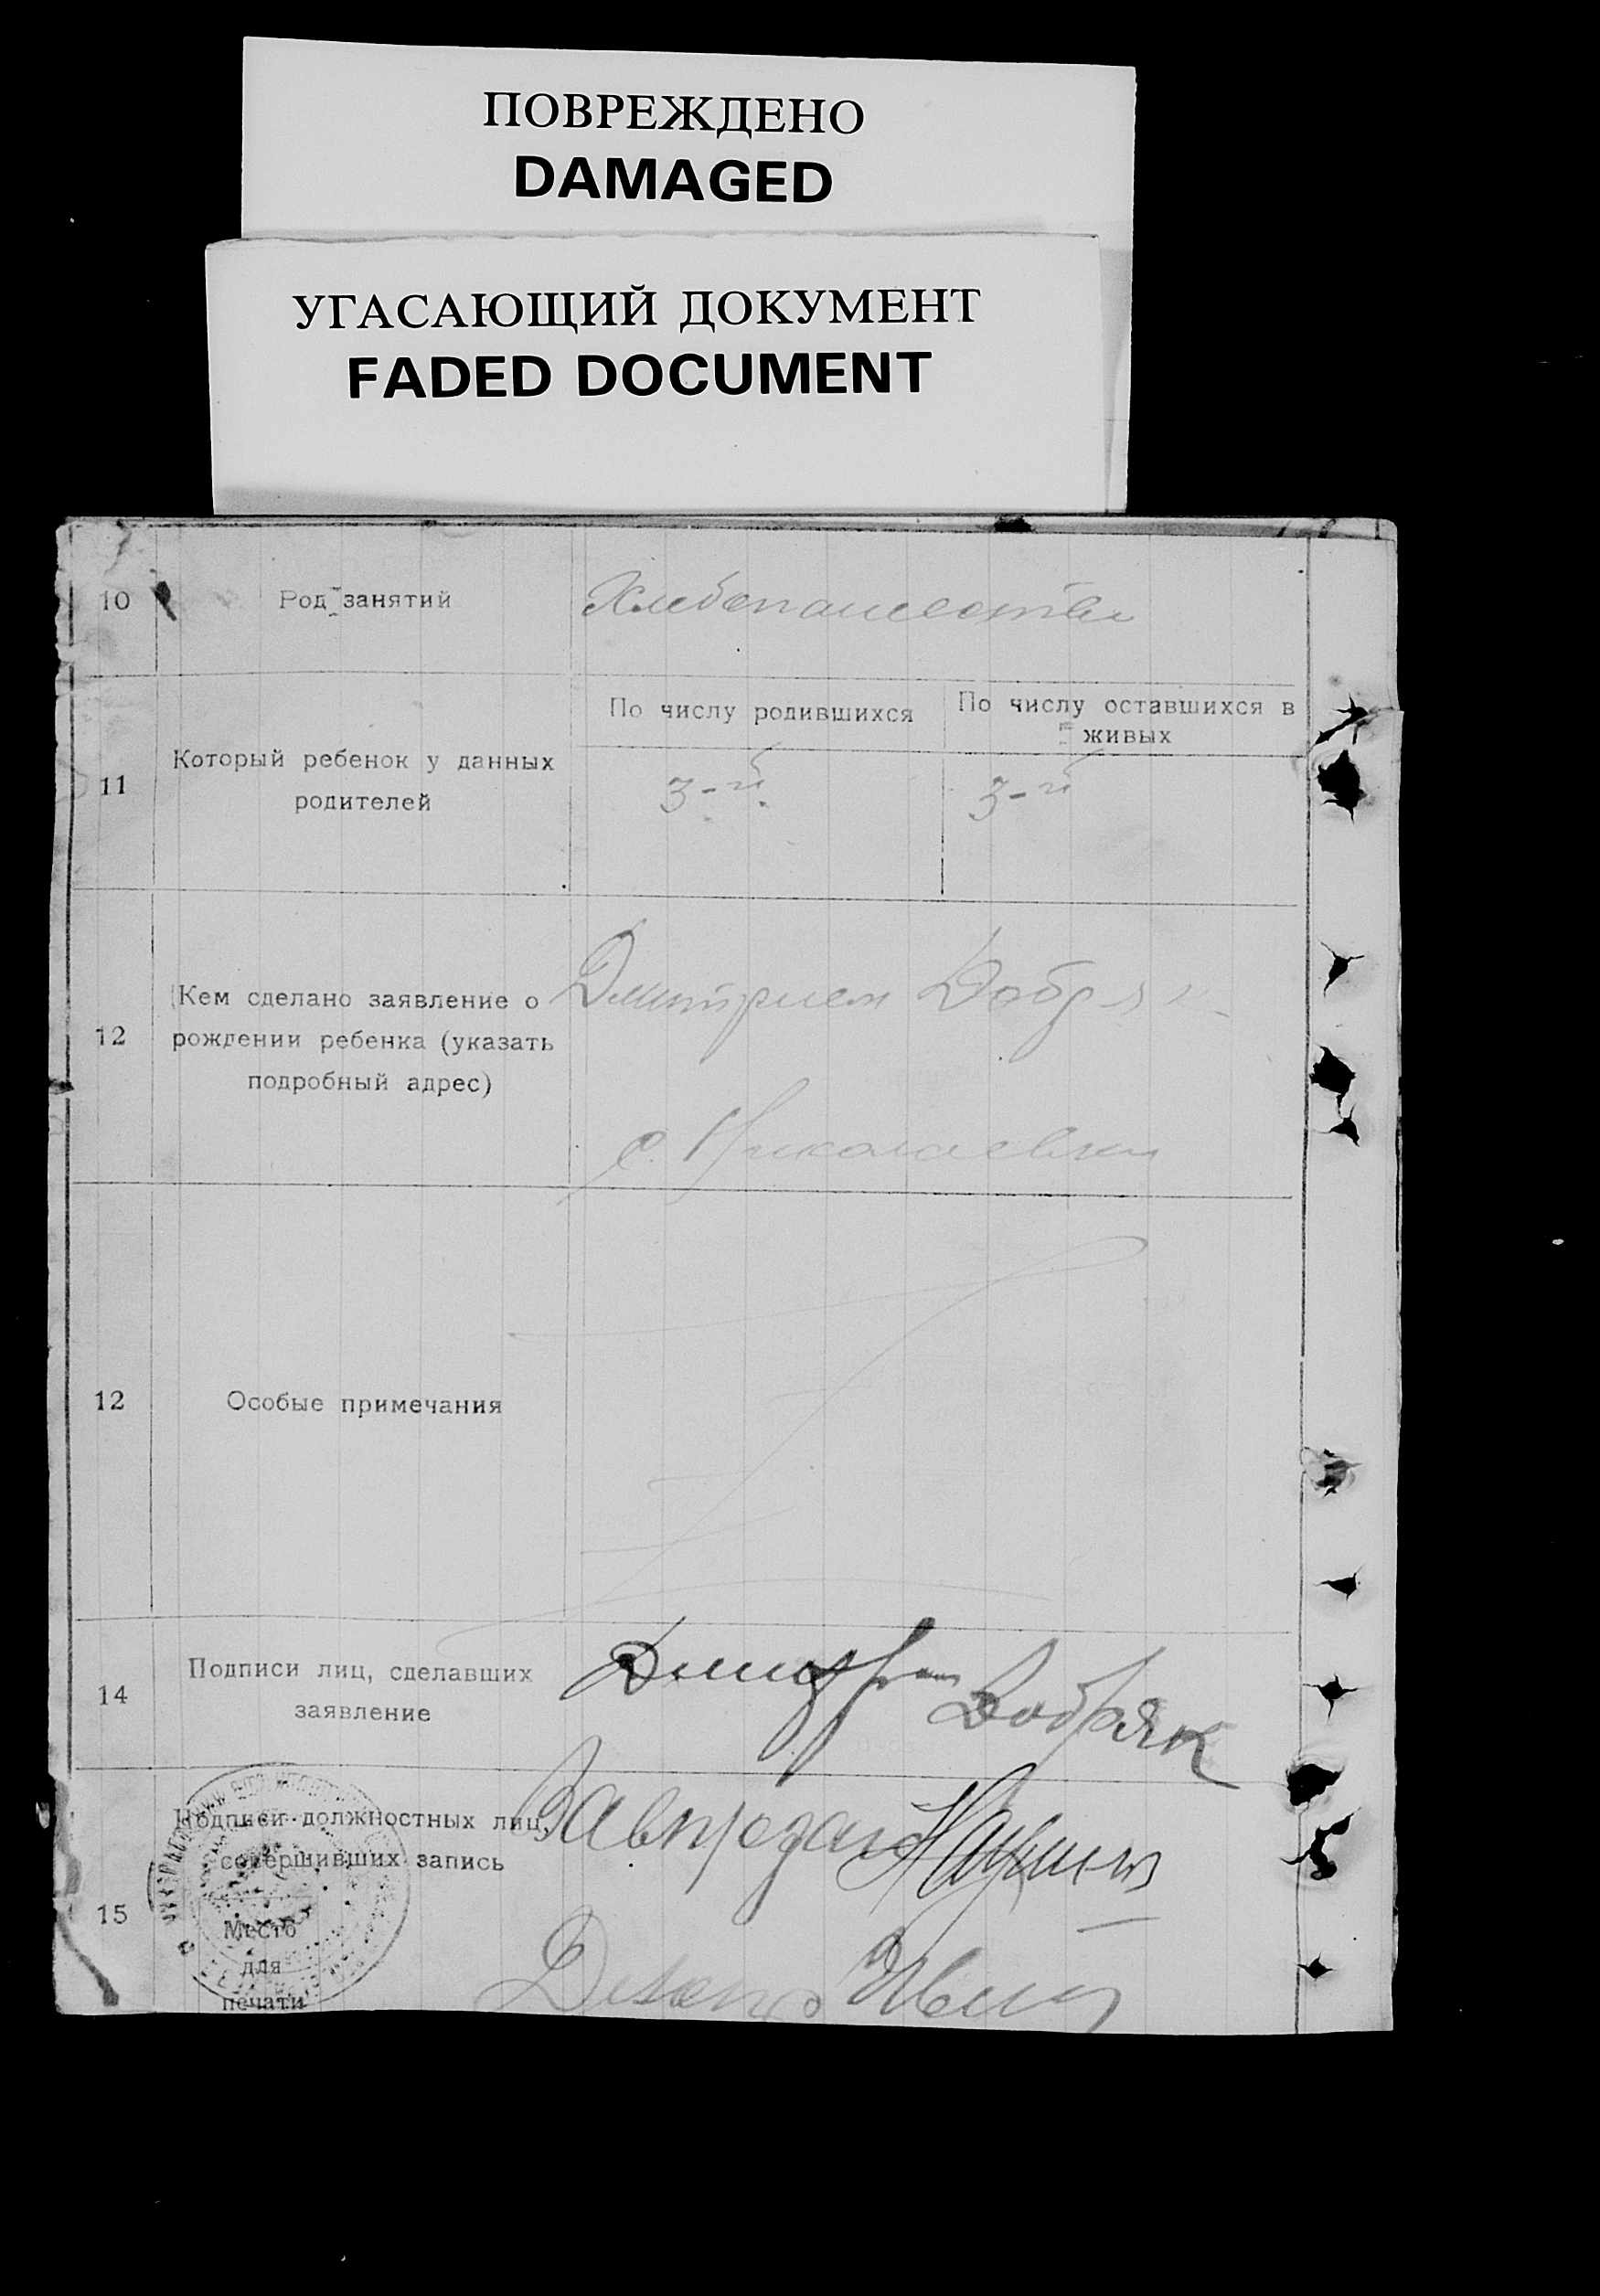 ПОВРЕЖДЕНО
DAMAGED
УГАСАЮЩИЙ ДОКУМЕНТ
FADED DOCUMENT
10 Род занятий Хлебопашество
По числу родившихся По числу оставшихся в
живых
11 Который ребенок у данных
родителей
3-й 3-й
12 Кем сделано заявление о
рождении ребенка (указать
подробный адрес)
Дмитрием Добряк
с. Николаевки
12 Особые примечания
14 Подписи лиц, сделавших
заявление
Дмитрий Добряк
15 Подписи должностных лиц,
совершивших запись
Завпредзаг
Место
для
печати